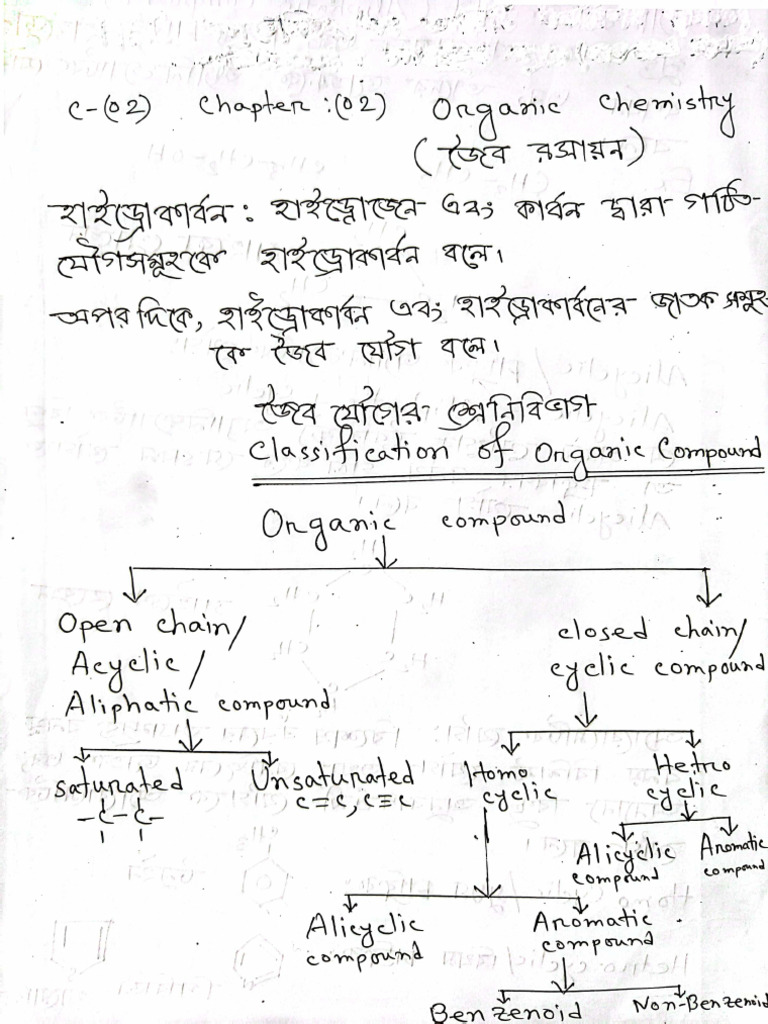 C-(02) Chapter :(02) Organic Chemistry
(জৈব রসায়ন)
হাইড্রোকার্বন : হাইড্রোজেন এবং কার্বন দ্বারা গঠিত
যৌগসমূহকে হাইড্রোকার্বন বলে।
অপর দিকে, হাইড্রোকার্বন এবং হাইড্রোকার্বনের জাতক সমূহ
কে জৈব যৌগ বলে।
জৈব যৌগের শ্রেনিবিভাগ
Classification of Organic Compound
Organic compound
Open chain/ closed chain/
Acyclic / cyclic compound
Aliphatic compound
saturated Unsaturated Homo Hetro
-C-C- C=C, C≡C cyclic cyclic
Alicyclic Aromatic
compound compound
Alicyclic Aromatic
compound compound
Benzenoid Non-Benzenoid